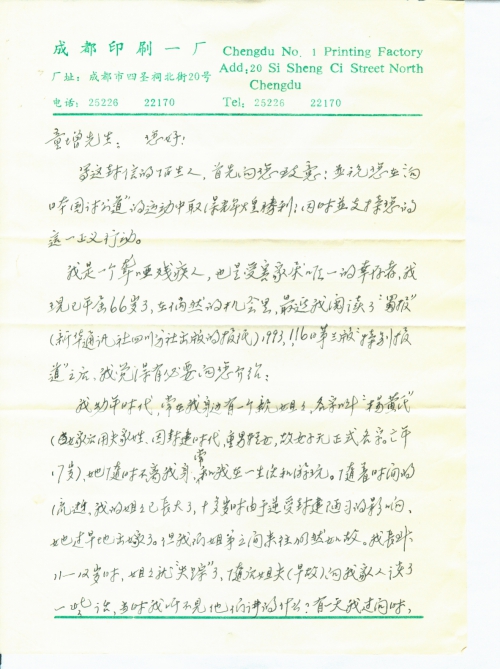 成都印刷一厂
Chengdu No. 1 Printing Factory
厂址：成都市四圣祠北街20号
Add:20 Si Sheng Ci Street North
Chengdu
电话：25226 22170
Tel：25226 22170
童增先生：您好！
写这封信的陌生人，首先向您致意；並祝您在向
日本国讨公道”的运动中取得辉煌胜利；同时並支持您的
这一正义行动。
我是一个聋哑残疾人，也是受害家属唯一的幸存者，我
现已年届66岁了，在偶然的机会里，最近我阅读了“蜀报”
(新华通讯社四川分社出版的报纸)1993,1,16日第三版“特别报
道”之后，我觉得有必要向您介绍：
我幼年时代，常在我身边有一个親姐姐，名字叫“杨黄氏”
(出嫁沿用夫家姓，因封建时代，重男轻女，故女子无正式名字。亡年
17岁)，她随时不离我身，常和我在一生活和游玩。随着时间的
流逝，我的姐姐已长大了，十多岁时由于遭受封建陋习的影响，
她过早地出嫁了。但我们姐弟之间来往仍然如故。我长到
11—12岁时，姐姐就“失踪”了，随后姐夫(早故)向我家人谈了
一些话，当时我听不见他们讲的什么？有一天我过问时，